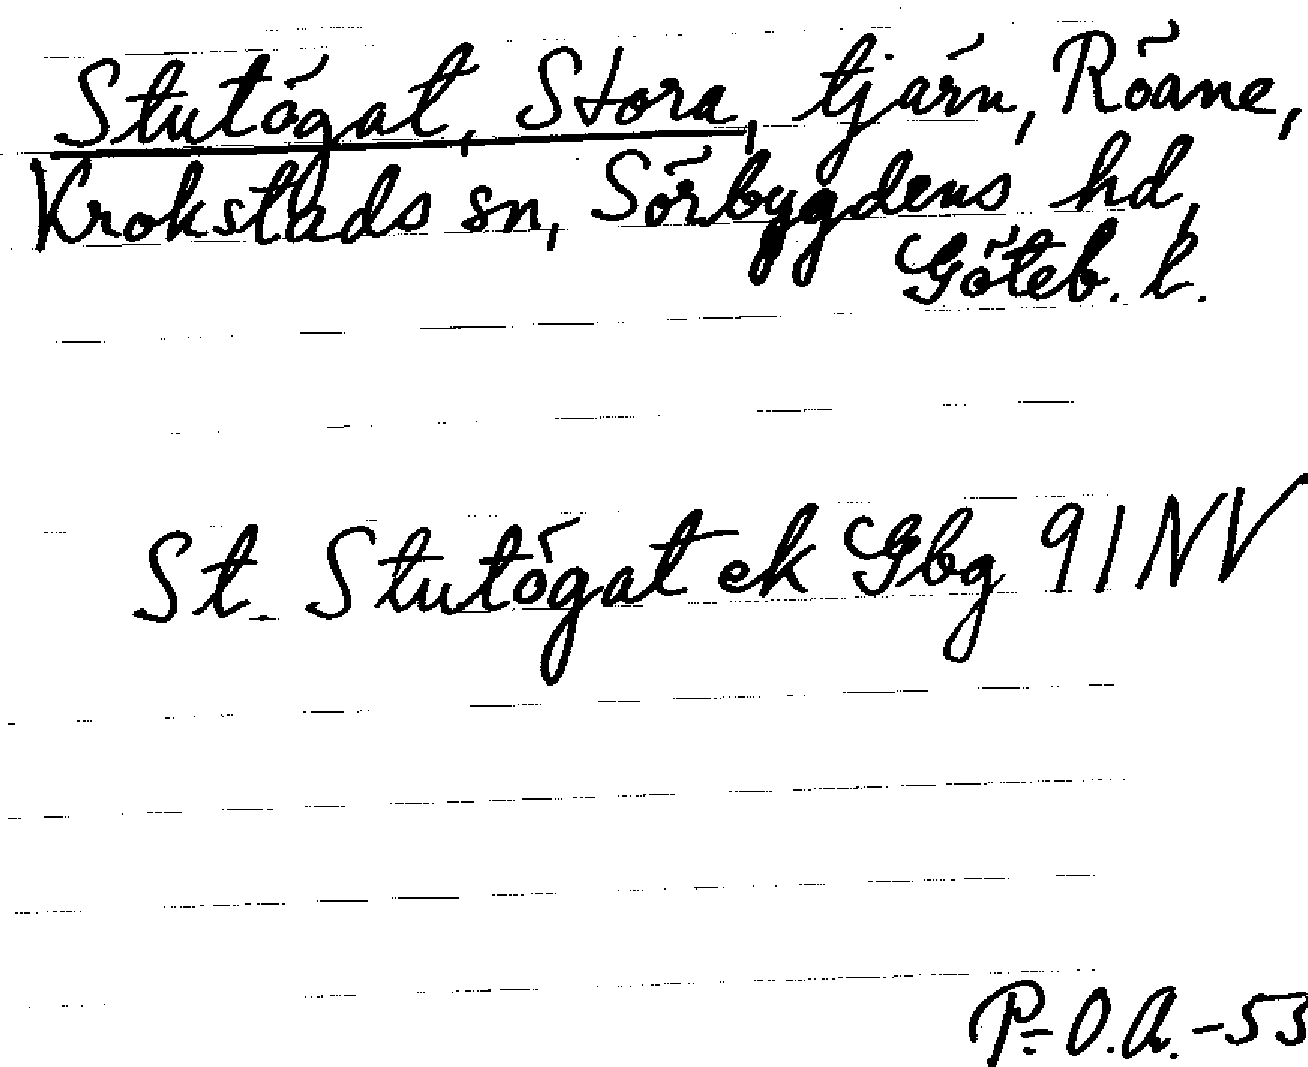 Stutögat, Stora, tjärn, Röane,
Krokstads sn, Sörbygdens hd,
Göteb. l.
St. Stutögat ek Gbg 91 NV
P-O.A.-53